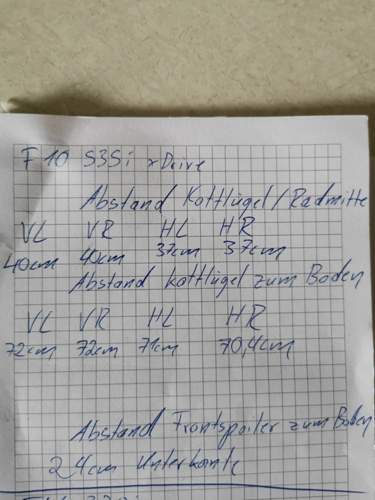 F10 535i xDrive
Abstand Kotflügel/Radmitte
VL VR HL HR
40cm 40cm 37cm 37cm
Abstand Kotflügel zum Boden
VL VR HL HR
72cm 72cm 71cm 70,4cm
Abstand Frontspoiler zum Boden
24cm Unterkante